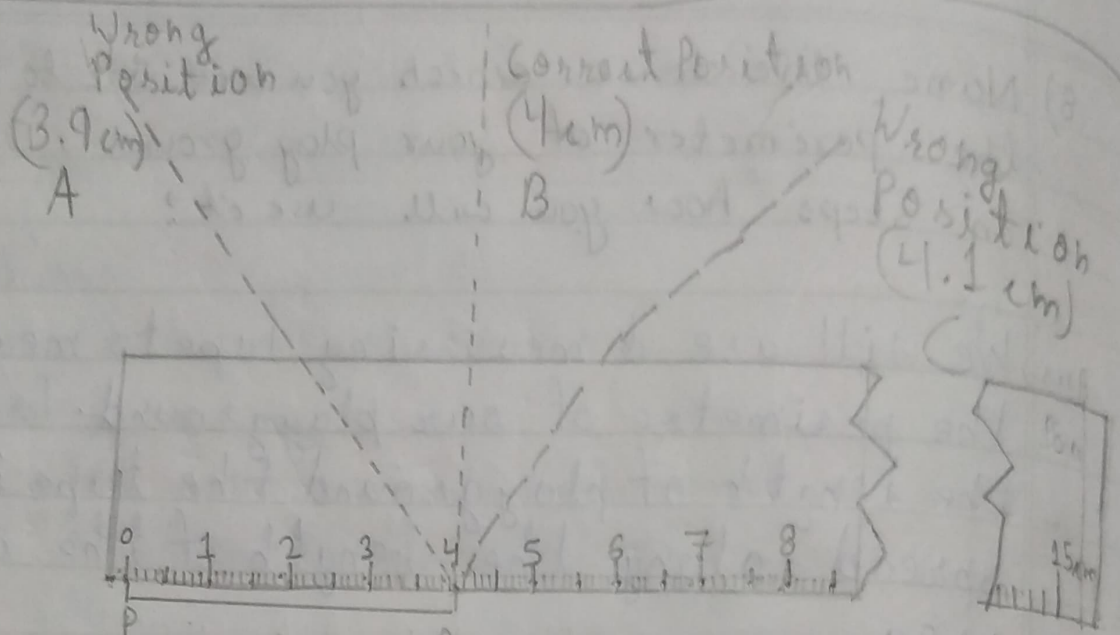 Wrong
Position
(3.9 cm)
A
Correct Position
(4 cm)
B
Wrong
Position
(4.1
cm)
C
0 1 2 3 4 5 6 7 8
15cm
P